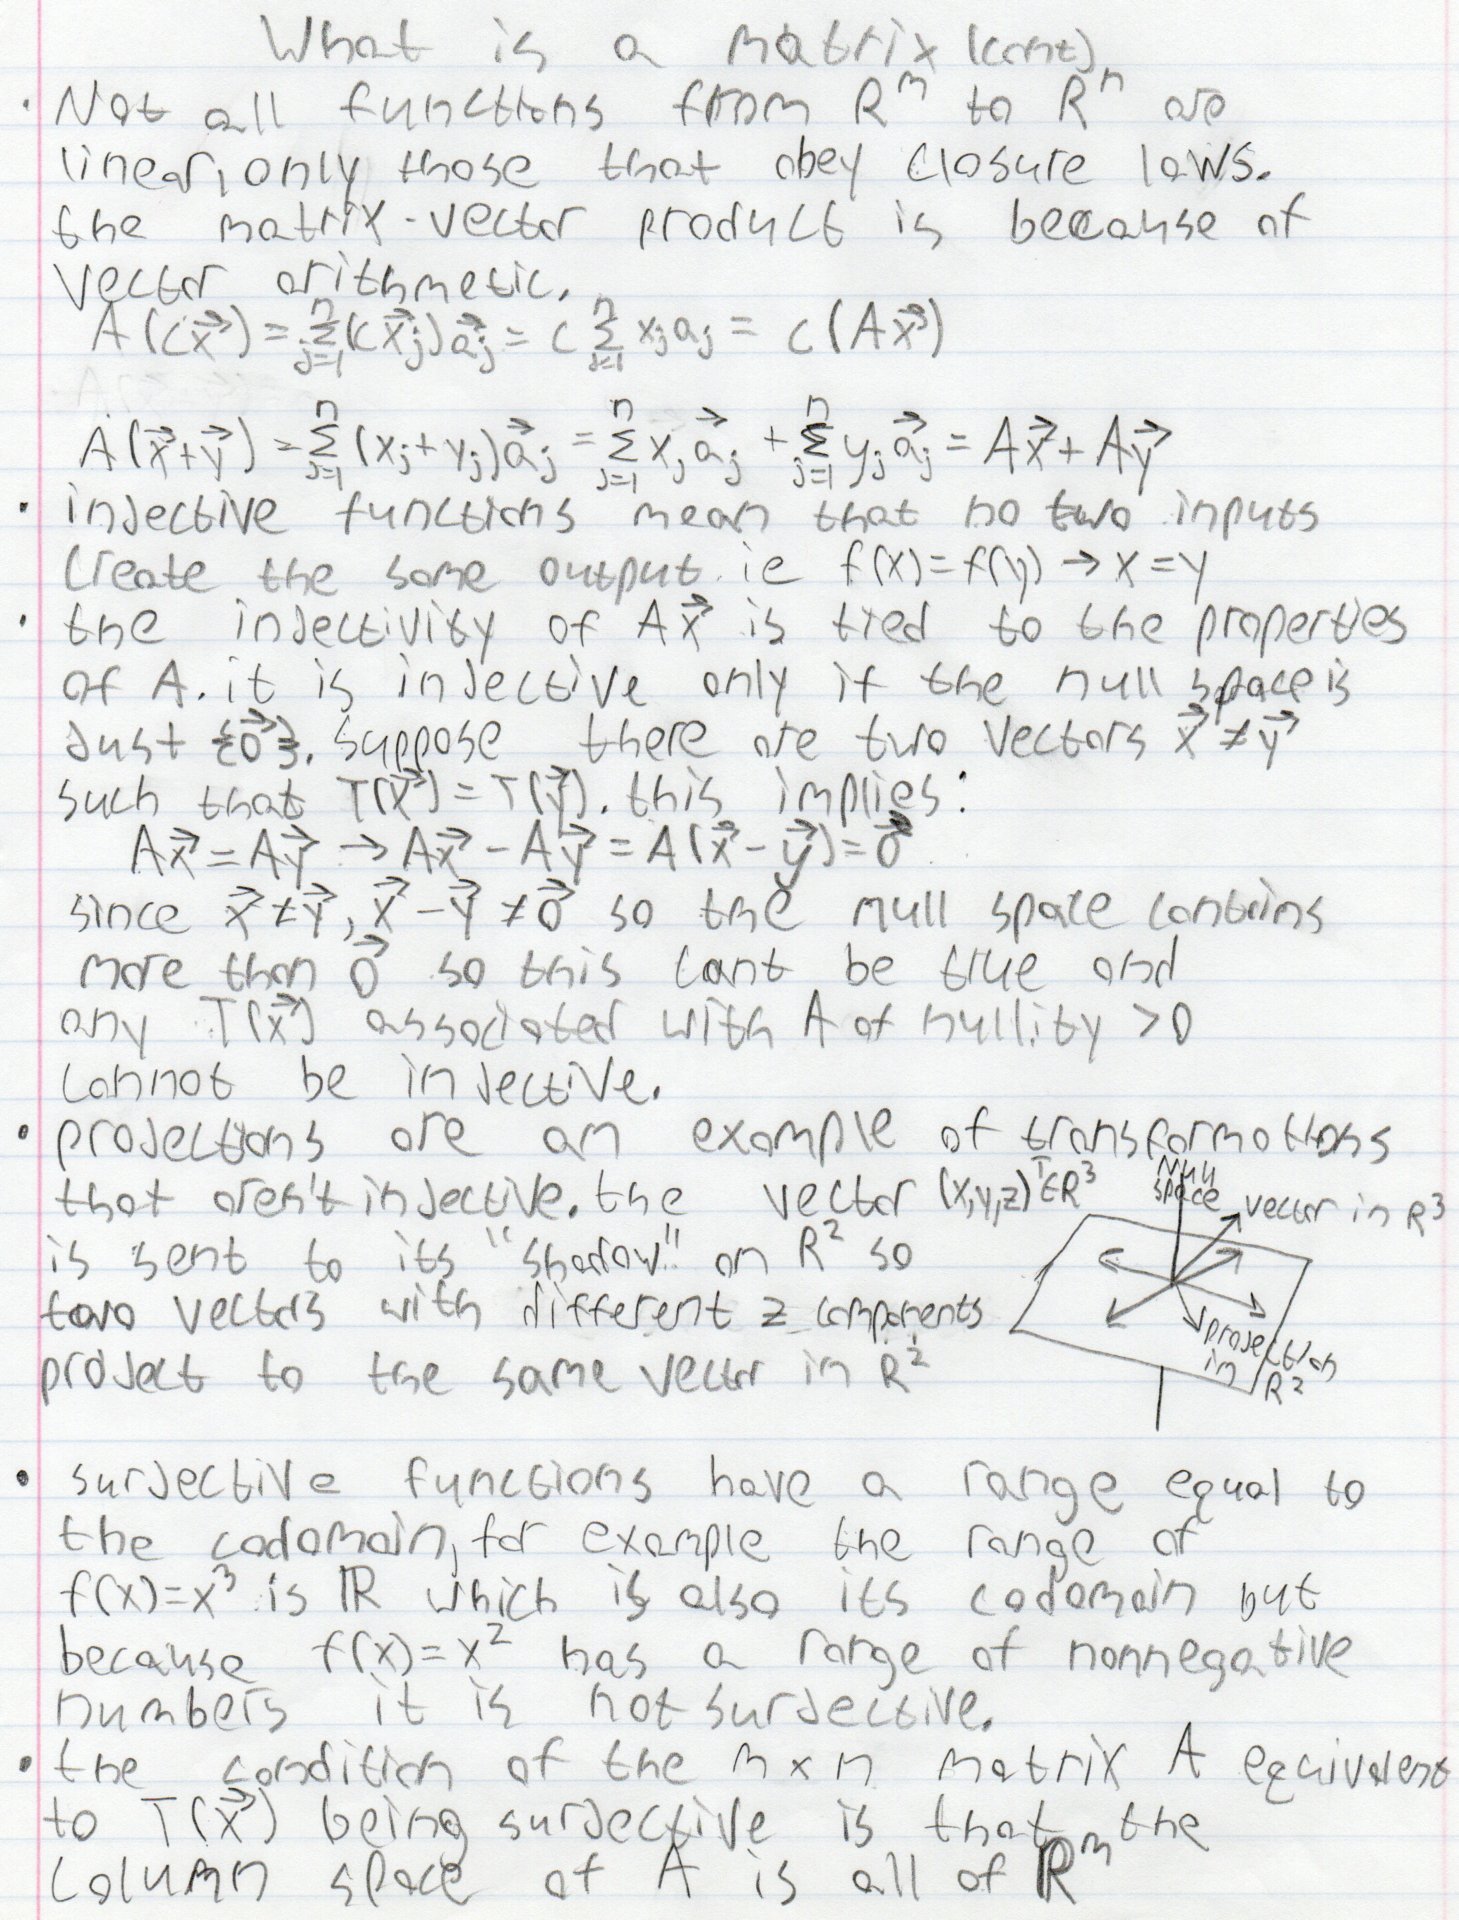 What is a matrix (cont)
• Not all functions from R^m to R^n are
linear, only those that obey closure laws.
the matrix-vector product is because of
vector arithmetic.
A(cx⃗) = Σ_{j=1}^n (cx⃗_j)a⃗_j = c Σ_{j=1}^n x_j a_j = c(Ax⃗)
A(x⃗+y⃗) = Σ_{j=1}^n (x_j+y_j)a⃗_j = Σ_{j=1}^n x_j a⃗_j + Σ_{j=1}^n y_j a⃗_j = Ax⃗ + Ay⃗
• injective functions mean that no two inputs
create the same output. ie f(x)=f(y) → x=y
• the injectivity of Ax⃗ is tied to the properties
of A. it is injective only if the null space is
just {0⃗}. suppose there are two vectors x⃗ ≠ y⃗
such that T(x⃗) = T(y⃗). this implies:
Ax⃗ = Ay⃗ → Ax⃗ - Ay⃗ = A(x⃗ - y⃗) = 0⃗
since x⃗ ≠ y⃗, x⃗ - y⃗ ≠ 0⃗ so the null space contains
more than 0⃗ so this cant be true and
any T(x⃗) associated with A of nullity >0
cannot be injective.
• projections are an example of transformations
that aren't injective. the vector (x,y,z)^T ∈ R^3
is sent to its "shadow" on R^2 so
two vectors with different z components
project to the same vector in R^2
Null
space
vector in R^3
projection
in R^2
• surjective functions have a range equal to
the codomain, for example the range of
f(x)=x^3 is ℝ which is also its codomain but
because f(x)=x^2 has a range of nonnegative
numbers it is not surjective.
• the condition of the m×n matrix A equivalent
to T(x⃗) being surjective is that the
column space of A is all of ℝ^m